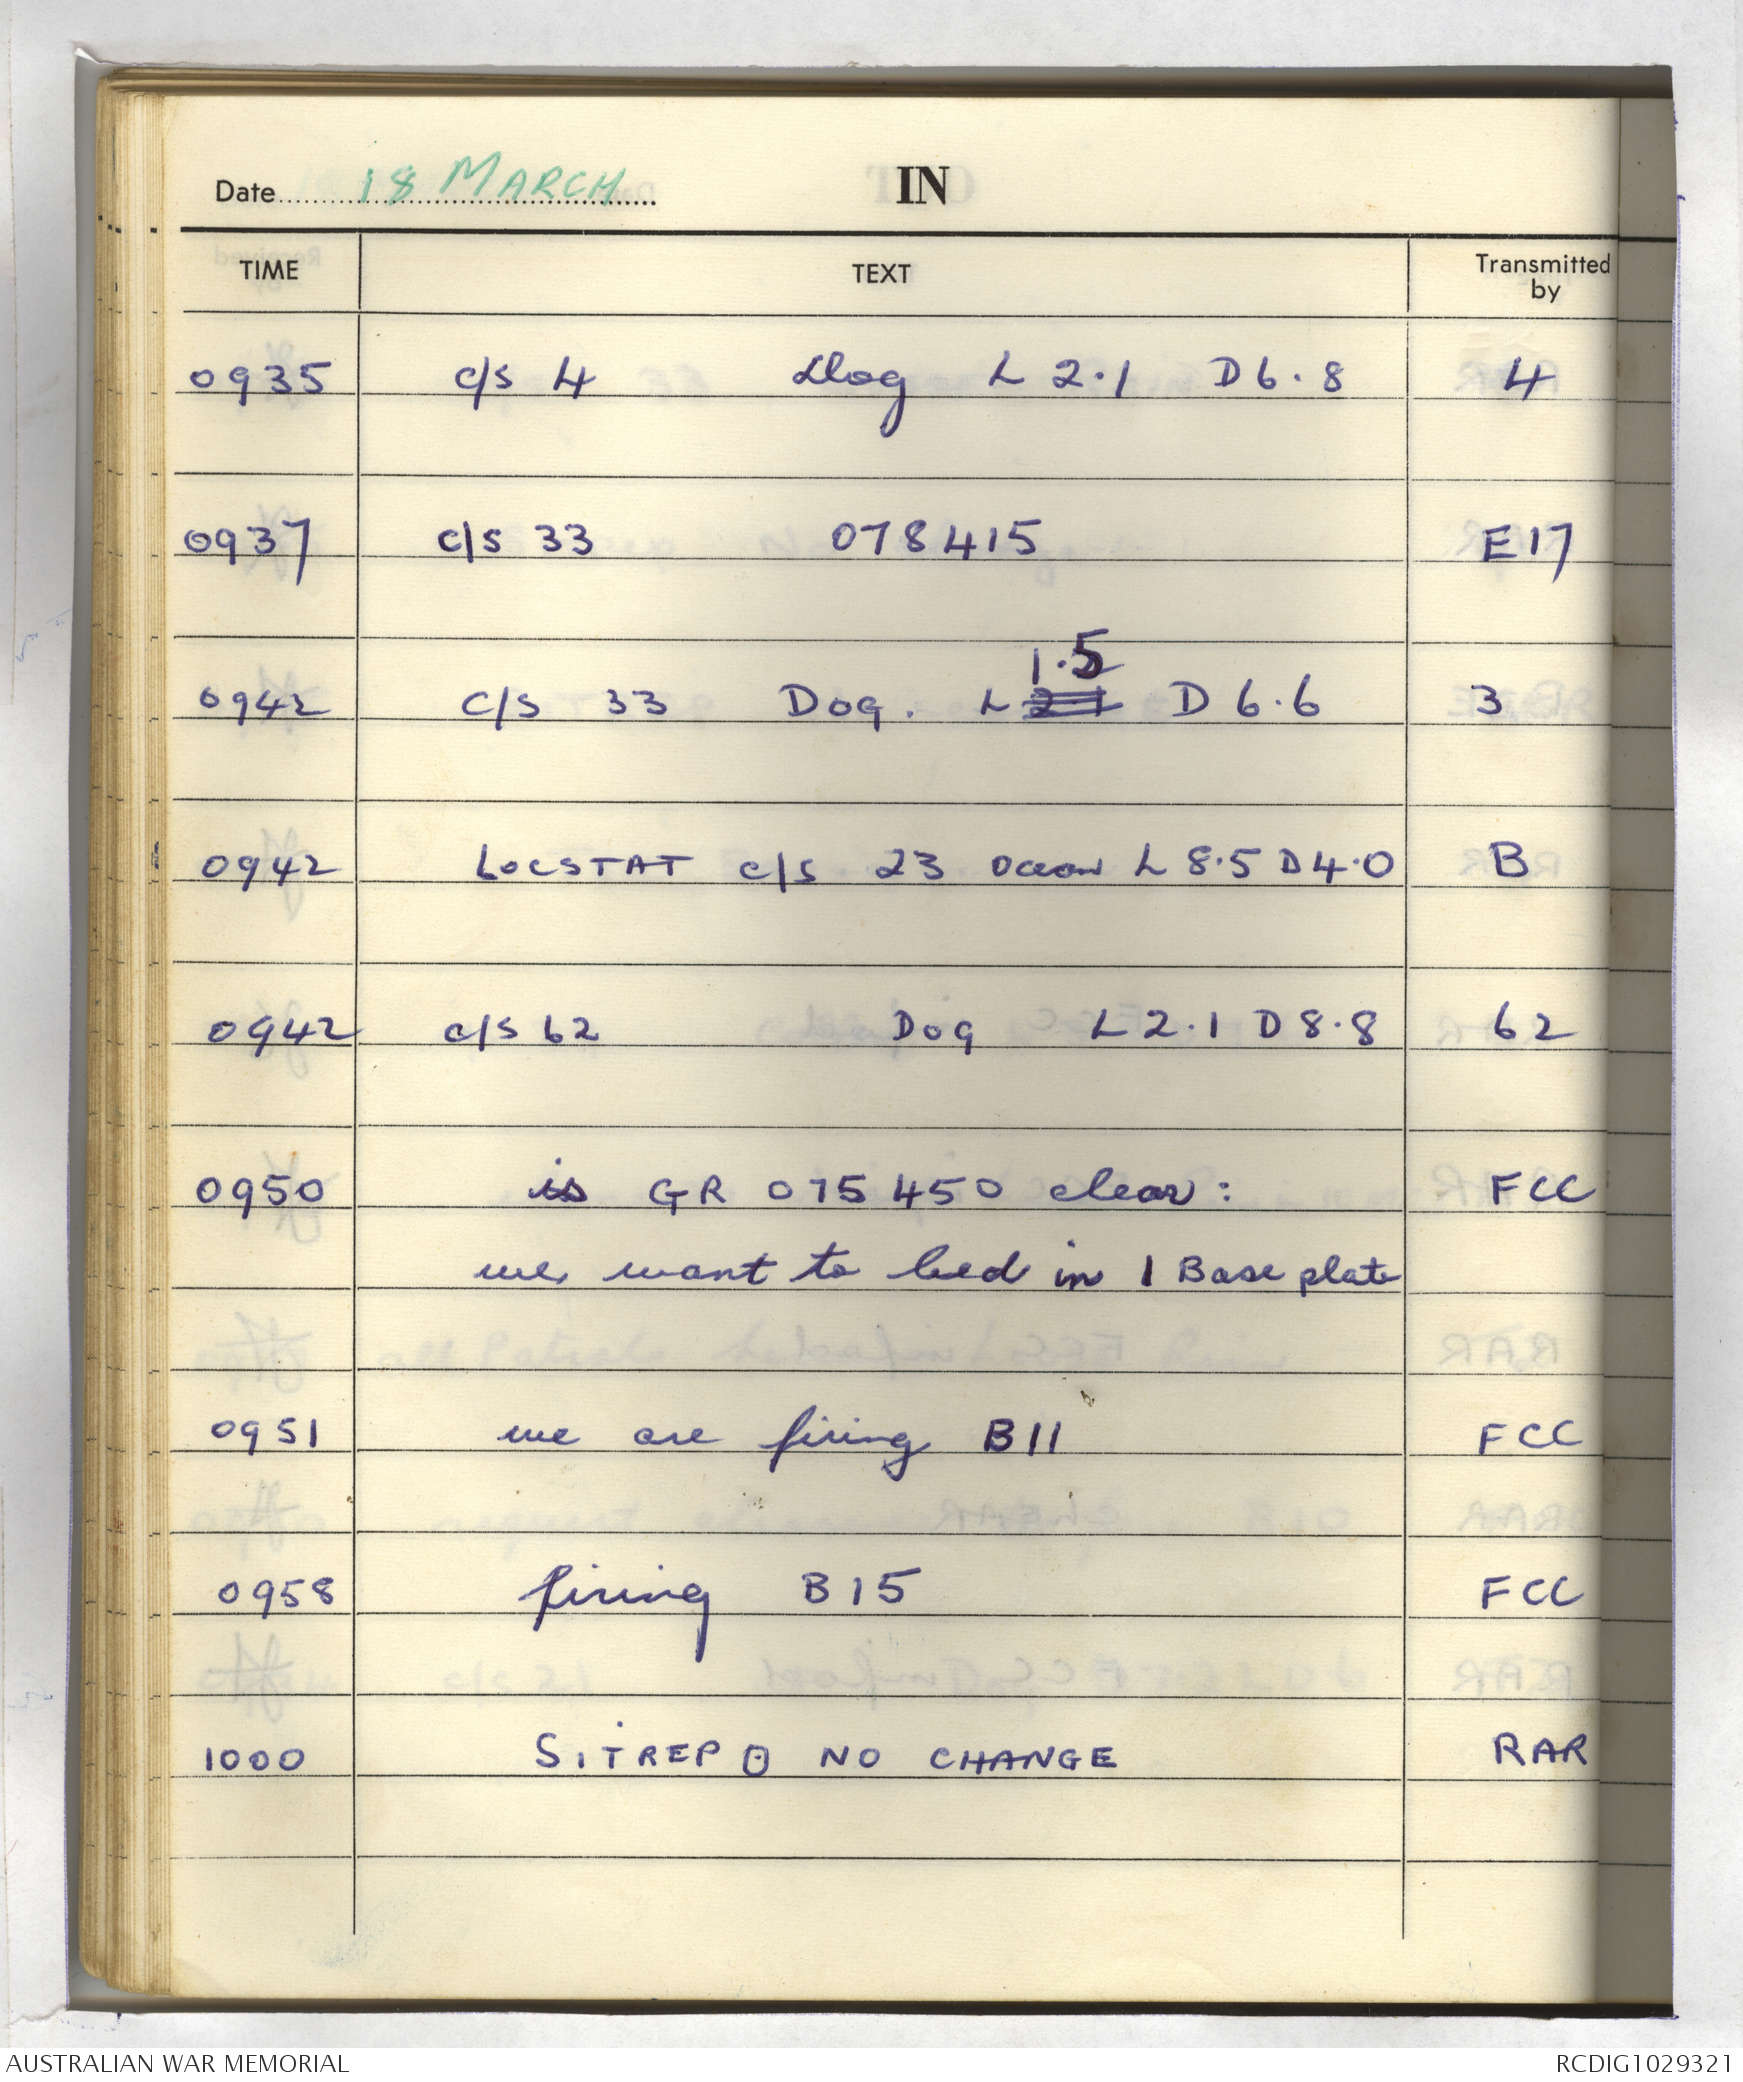 Date 18 MARCH IN
TIME TEXT Transmitted by
0935 c/s 4 Dog L 2.1 D 6.8 4
0937 c/s 33 078415 E17
1.5
0942 c/s 33 Dog. L 2.1 D 6.6 3
0942 LOCSTAT c/s 23 Ocean L 8.5 D 4.0 B
0942 c/s 62 Dog L 2.1 D 8.8 62
0950 is GR 075450 clear: FCC
we want to bed in 1 Base plate
0951 we are firing B11 FCC
0958 firing B15 FCC
1000 SITREP NO CHANGE RAR
AUSTRALIAN WAR MEMORIAL RCDIG1029321